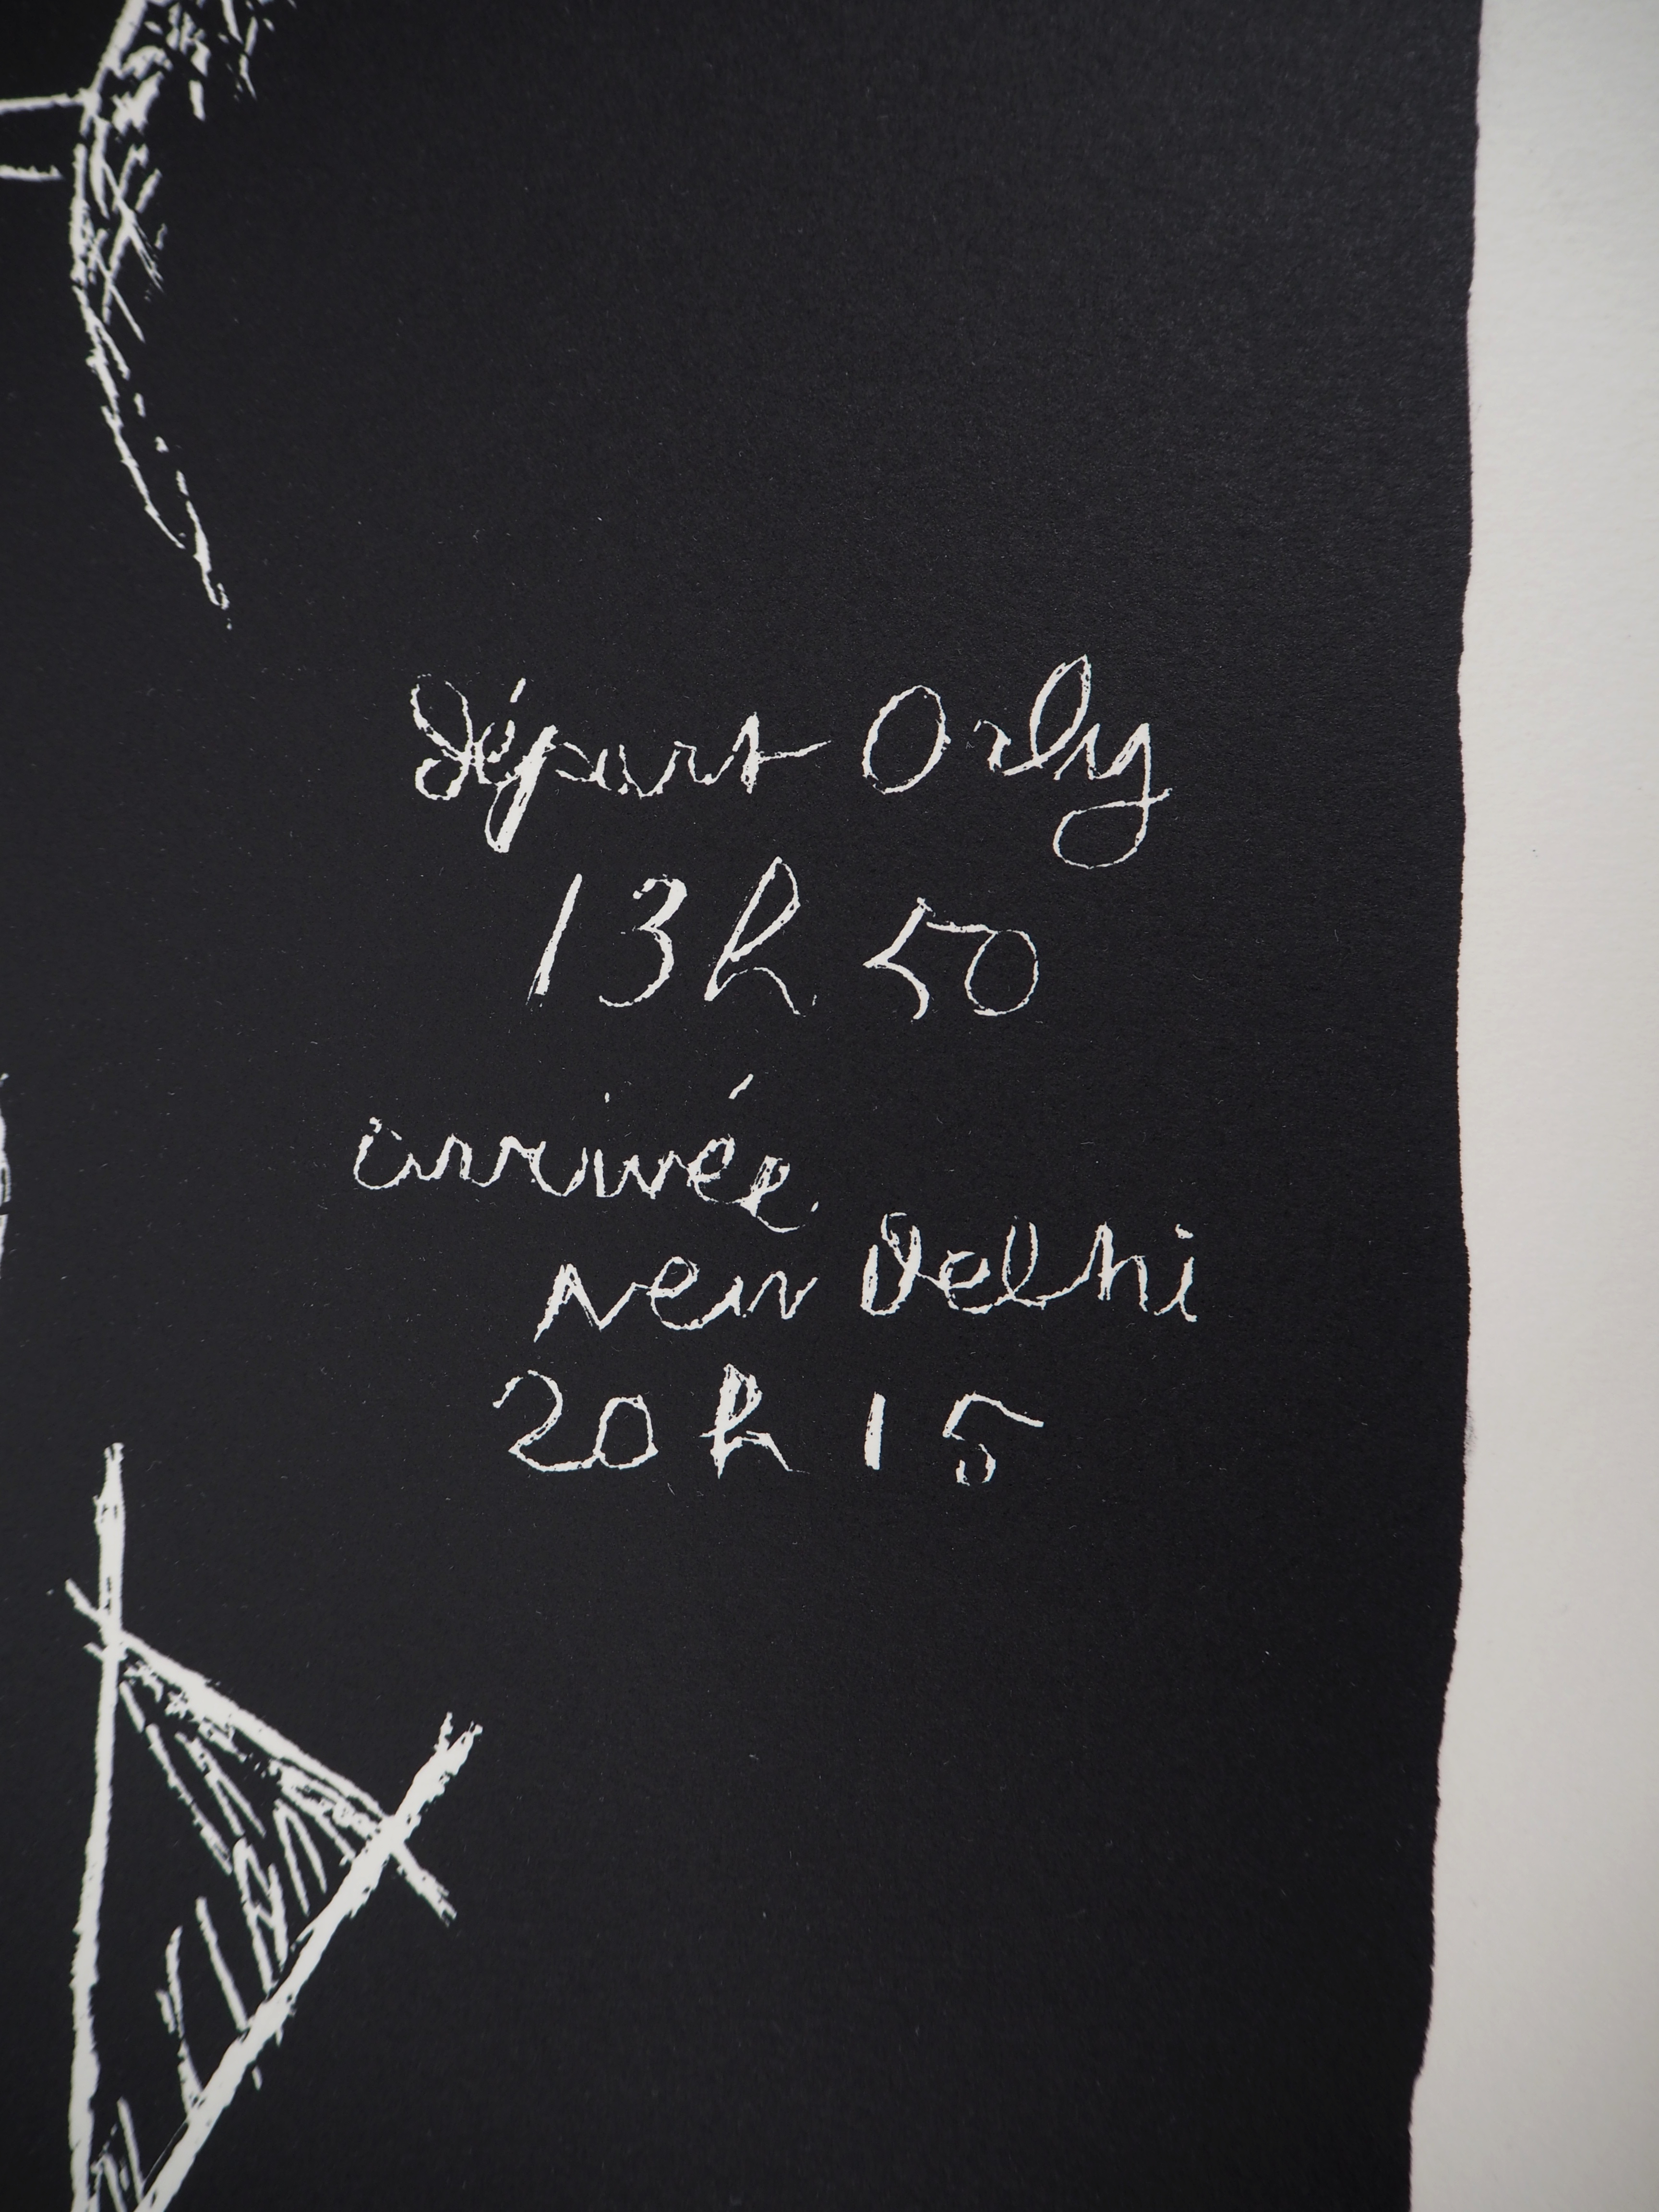 départ Orly
13h 50
arrivée
New Delhi
20h 15